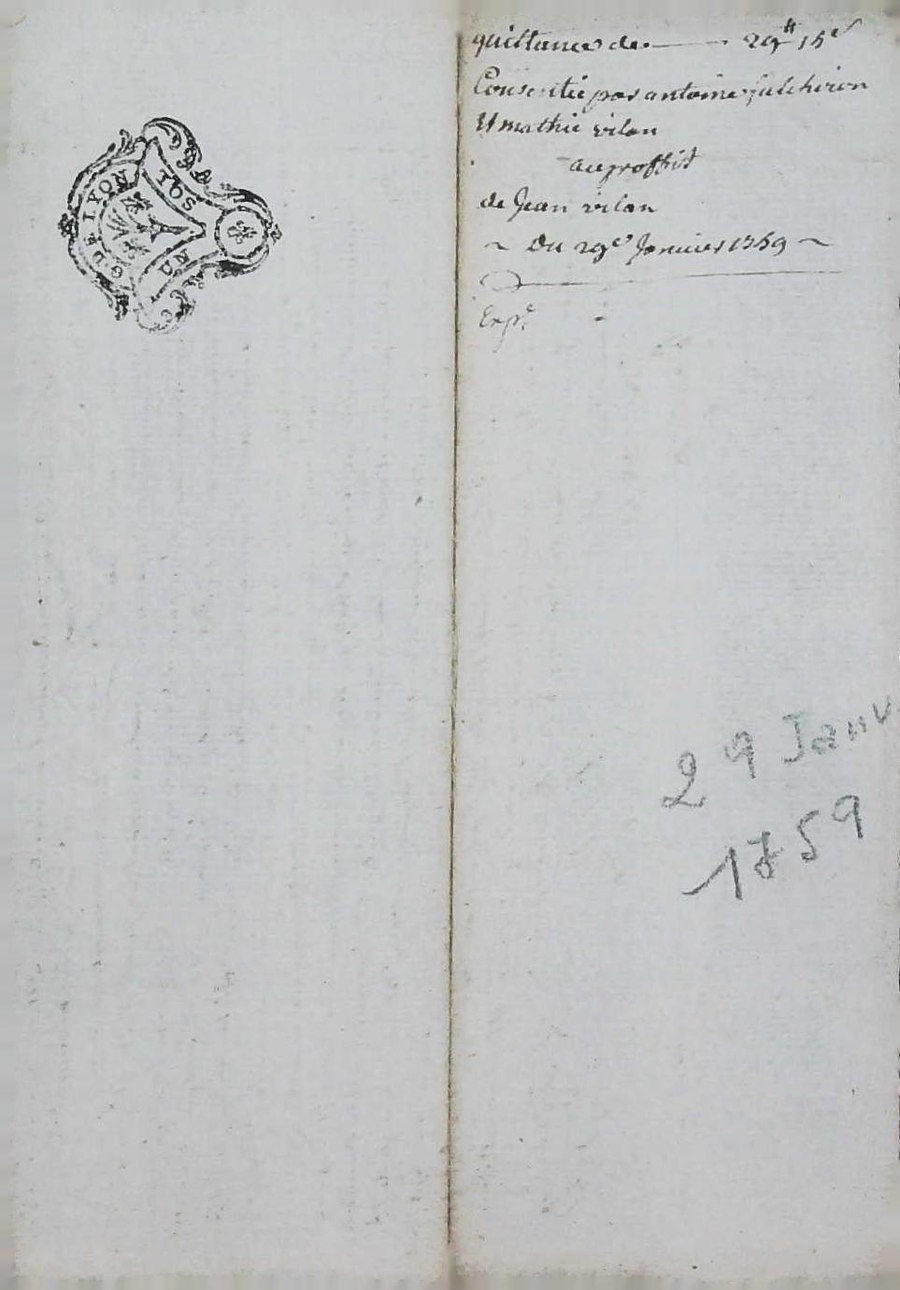 G DE LYON
SOL
UN
quittance de ——— 29# 15s
Consentie par antoine fulchiron
Et mathie vilon
au proffit
de Jean vilon
~ Du 29e Janvier 1759 ~
Expe
29 Janv.
1759